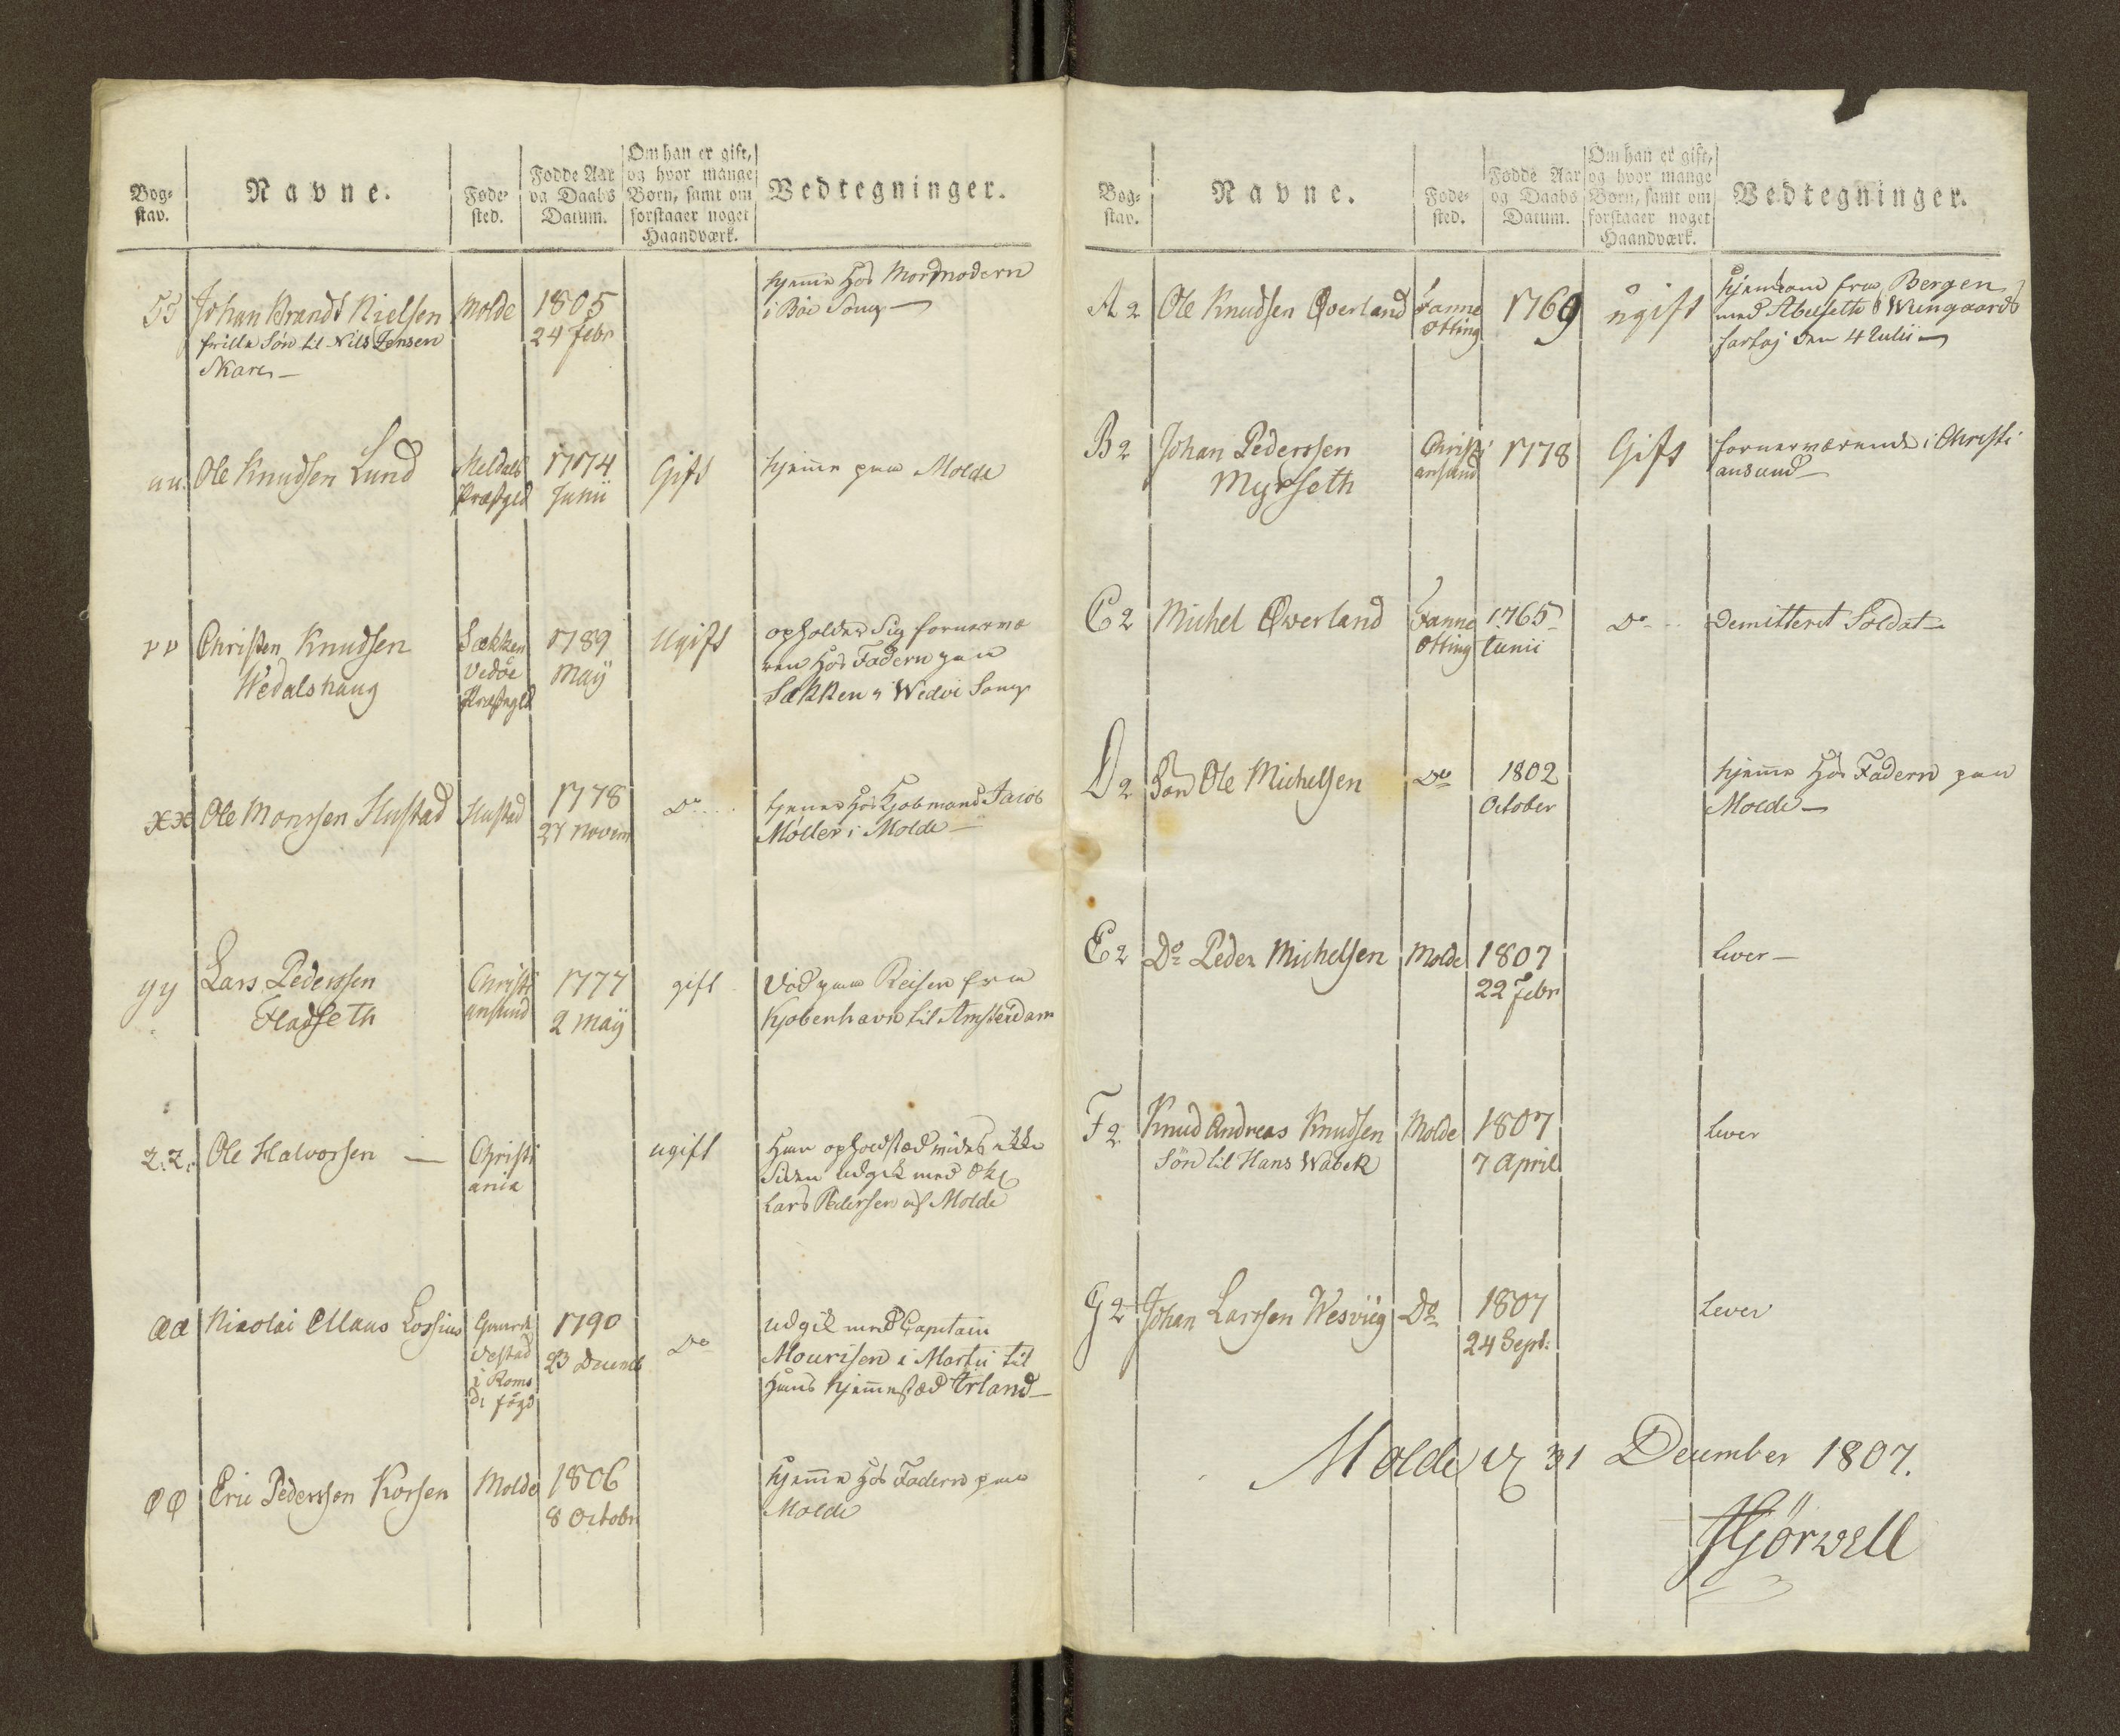 Bog-
stav.
Navne.
Føde-
sted.
Fødde Aar
og Daabs
Datum.
Om han er gift,
og hvor mange
Børn, samt om
forstaaer noget
Haandværk.
Vedtegninger.
Johan Brandt Nielsen
Molde
1805
24 febr
hjemme hos Mormodern
i Boe Sogn
Søn til Nils Jensen
Skare
uu.
Ole Knudsen Lund
Meldals
Præstgld
1774
Junii
Gift
hjemme paa Molde
vv
Christen Knudsen
Wedalshaug
Sækken
Vedøe
Præstegld
1789
Maÿ
Ugift
opholder Sig fornærvæ
ren hos Fadern paa
Sækken i Wedøi Sogn
xx
Ole Monssen Hustad
Hustad
1778
27 Novem
Do
tjener hos Kjøbmand Jacob
Møller i Molde
yy
Lars Pederssen
Fladseth
Christi
ansund
1777
2 Maÿ
gift
Død paa Reisen fra
Kjøbenhavn til Amsterdam
z.z.
Ole Halvorsen
Christi
ania
ugift
Hans opholdstæd vides ikke
Siden udgik med
Lars Pedersen af Molde
ææ
Nicolai Claus Lossius
Gaard
Vestad
i Roms
d: fogd
1790
23 Decemb
Do
udgik med Capitain
Mourisen i Martii til
Hans hjemmestæd Irland
øø
Eric Pederssen Korsen
Molde
1806
8 Octobr
hjemme hos Fadern paa
Molde
Bog-
stav.
Navne.
Føde-
sted.
Fødde Aar
og Daabs
Datum.
Om han er gift,
og hvor mange
Børn, samt om
forstaaer noget
Haandværk.
Vedtegninger.
A2
Ole Knudsen Øverland
Fanne
Otting
1769
ugift
Hjemkom fra Bergen
med Abelseth & Wiingaards
fartøj den 4 Julii
B2
Johan Pederssen
Myrseth
Christi
ansund
1778
Gift
fornærværende i Christi
ansund
C2
Michel Øverland
Fanne
Otting
1765
Iunii
Do
demitteret Soldat
D2
Søn Ole Michelsen
Do
1802
October
hjemme hos Fadern paa
Molde
E2
Do Peder Michelsen
Molde
1807
22 Febr
lever
F2
Knud Andreas Knudsen
Søn til Hans Wabek
Molde
1807
7 April
lever
G2
Johan Larssen Wesviig
Do
1807
24 Sept:
Lever
Molde d 31 December 1807.
Hjörwell